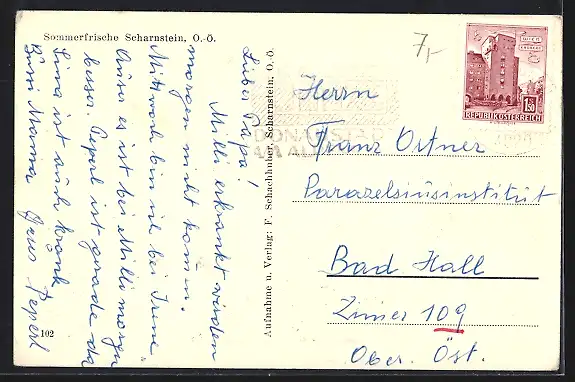 Sommerfrische Scharnstein, O.-Ö.
Lieber Papa!
Milli erkrankt werden
morgen nicht komen.
Mittwoch bin ich bei Irene
Auss es ist bei Milli morgen
besser Peperl ist gerade da
Lina ist auch krank
Bussi Mama Gruss Peperl
102
Aufnahme u. Verlag: F. Schachhuber, Scharnstein, O.-Ö.
7,-
WIEN
1.50
REPUBLIK ÖSTERREICH
DONAUSTADT
Herrn
Franz Ortner
Parazelsiusinstitut
Bad Hall
Zimer 109
Ober. Öst.